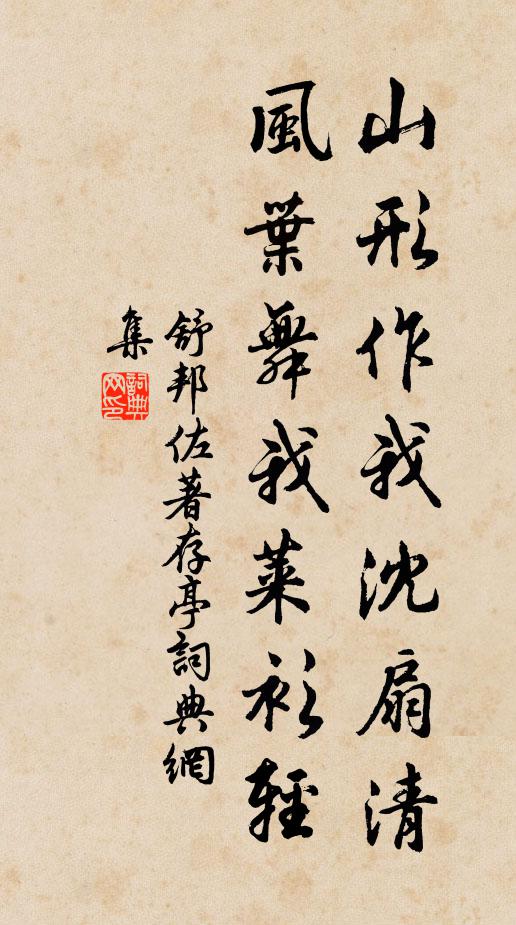 山形作我沈扇清
風葉舞我萊衫輕
舒邦佐著存亭詞典網
集
詞典
网印